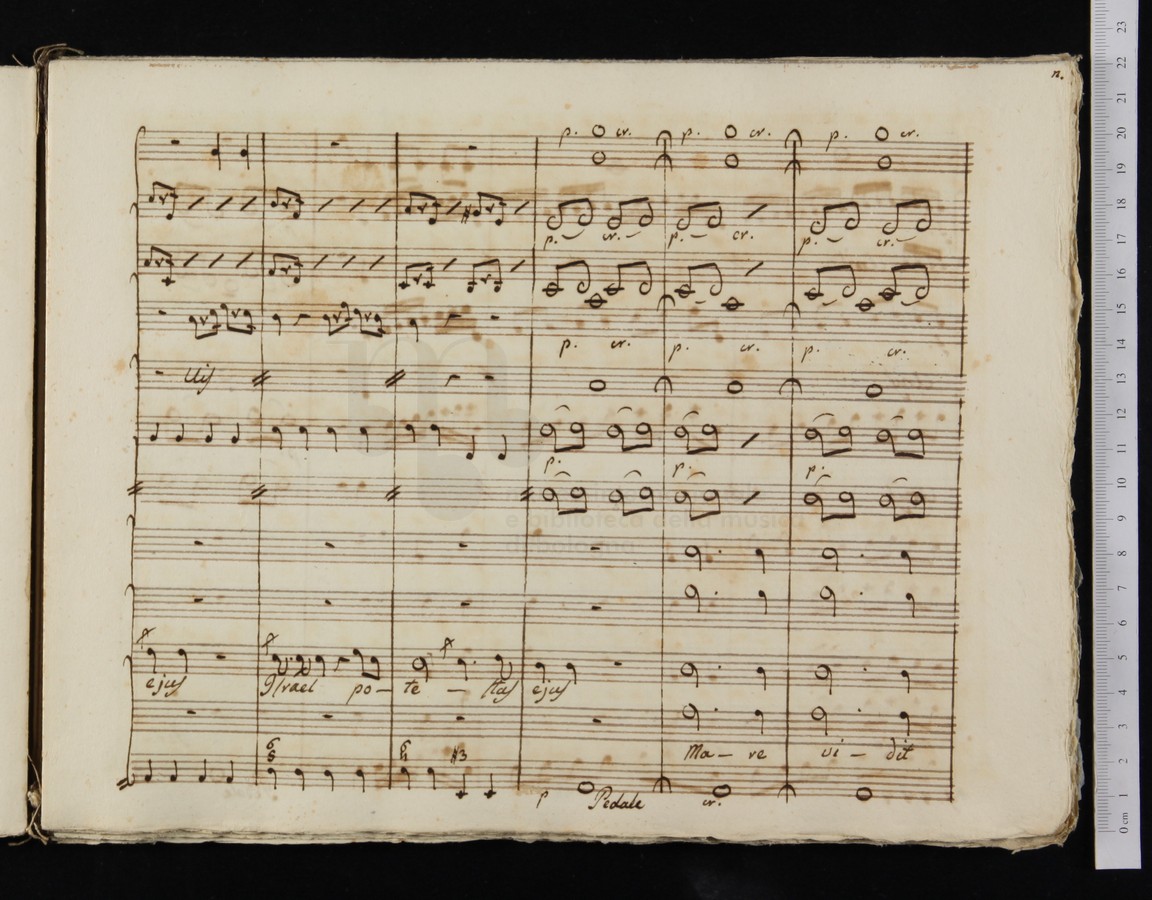 n.
p. cr. p. cr. p. cr.
p. cr. p. cr. p. cr.
p. cr. p. cr. p. cr.
Uis
p. p. p.
e biblioteca della musica
ejus Israel po - te - stas ejus
6 5 6 4 #3
Ma - re vi - dit
p Pedale cr.
0 cm 1 2 3 4 5 6 7 8 9 10 11 12 13 14 15 16 17 18 19 20 21 22 23